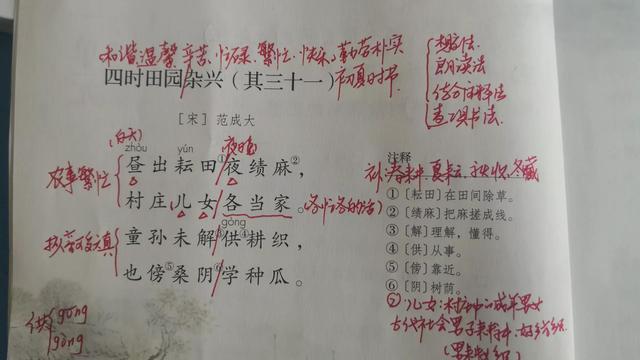 和谐 温馨 辛苦、忙碌、繁忙、快乐、勤劳朴实
四时田园杂兴（其三十一）
初夏时节
想象法
朗读法
结合注释法
[宋] 范成大
(白天)
夜晚
zhòu yún
昼出耘田①夜绩麻②，
农事繁忙
村庄儿女各当家。
(各忙各的活)
gòng
童孙未解③供④耕织，
孩童天真
也傍⑤桑阴⑥学种瓜。
供 gōng
gòng
注释
春耕、夏耘、秋收、冬藏
①〔耘田〕在田间除草。
②〔绩麻〕把麻搓成线。
③〔解〕理解，懂得。
④〔供〕从事。
⑤〔傍〕靠近。
⑥〔阴〕树荫。
⑦儿女：村庄中的成年男女
古代社会男子耕种，女纺织
(男耕女织)